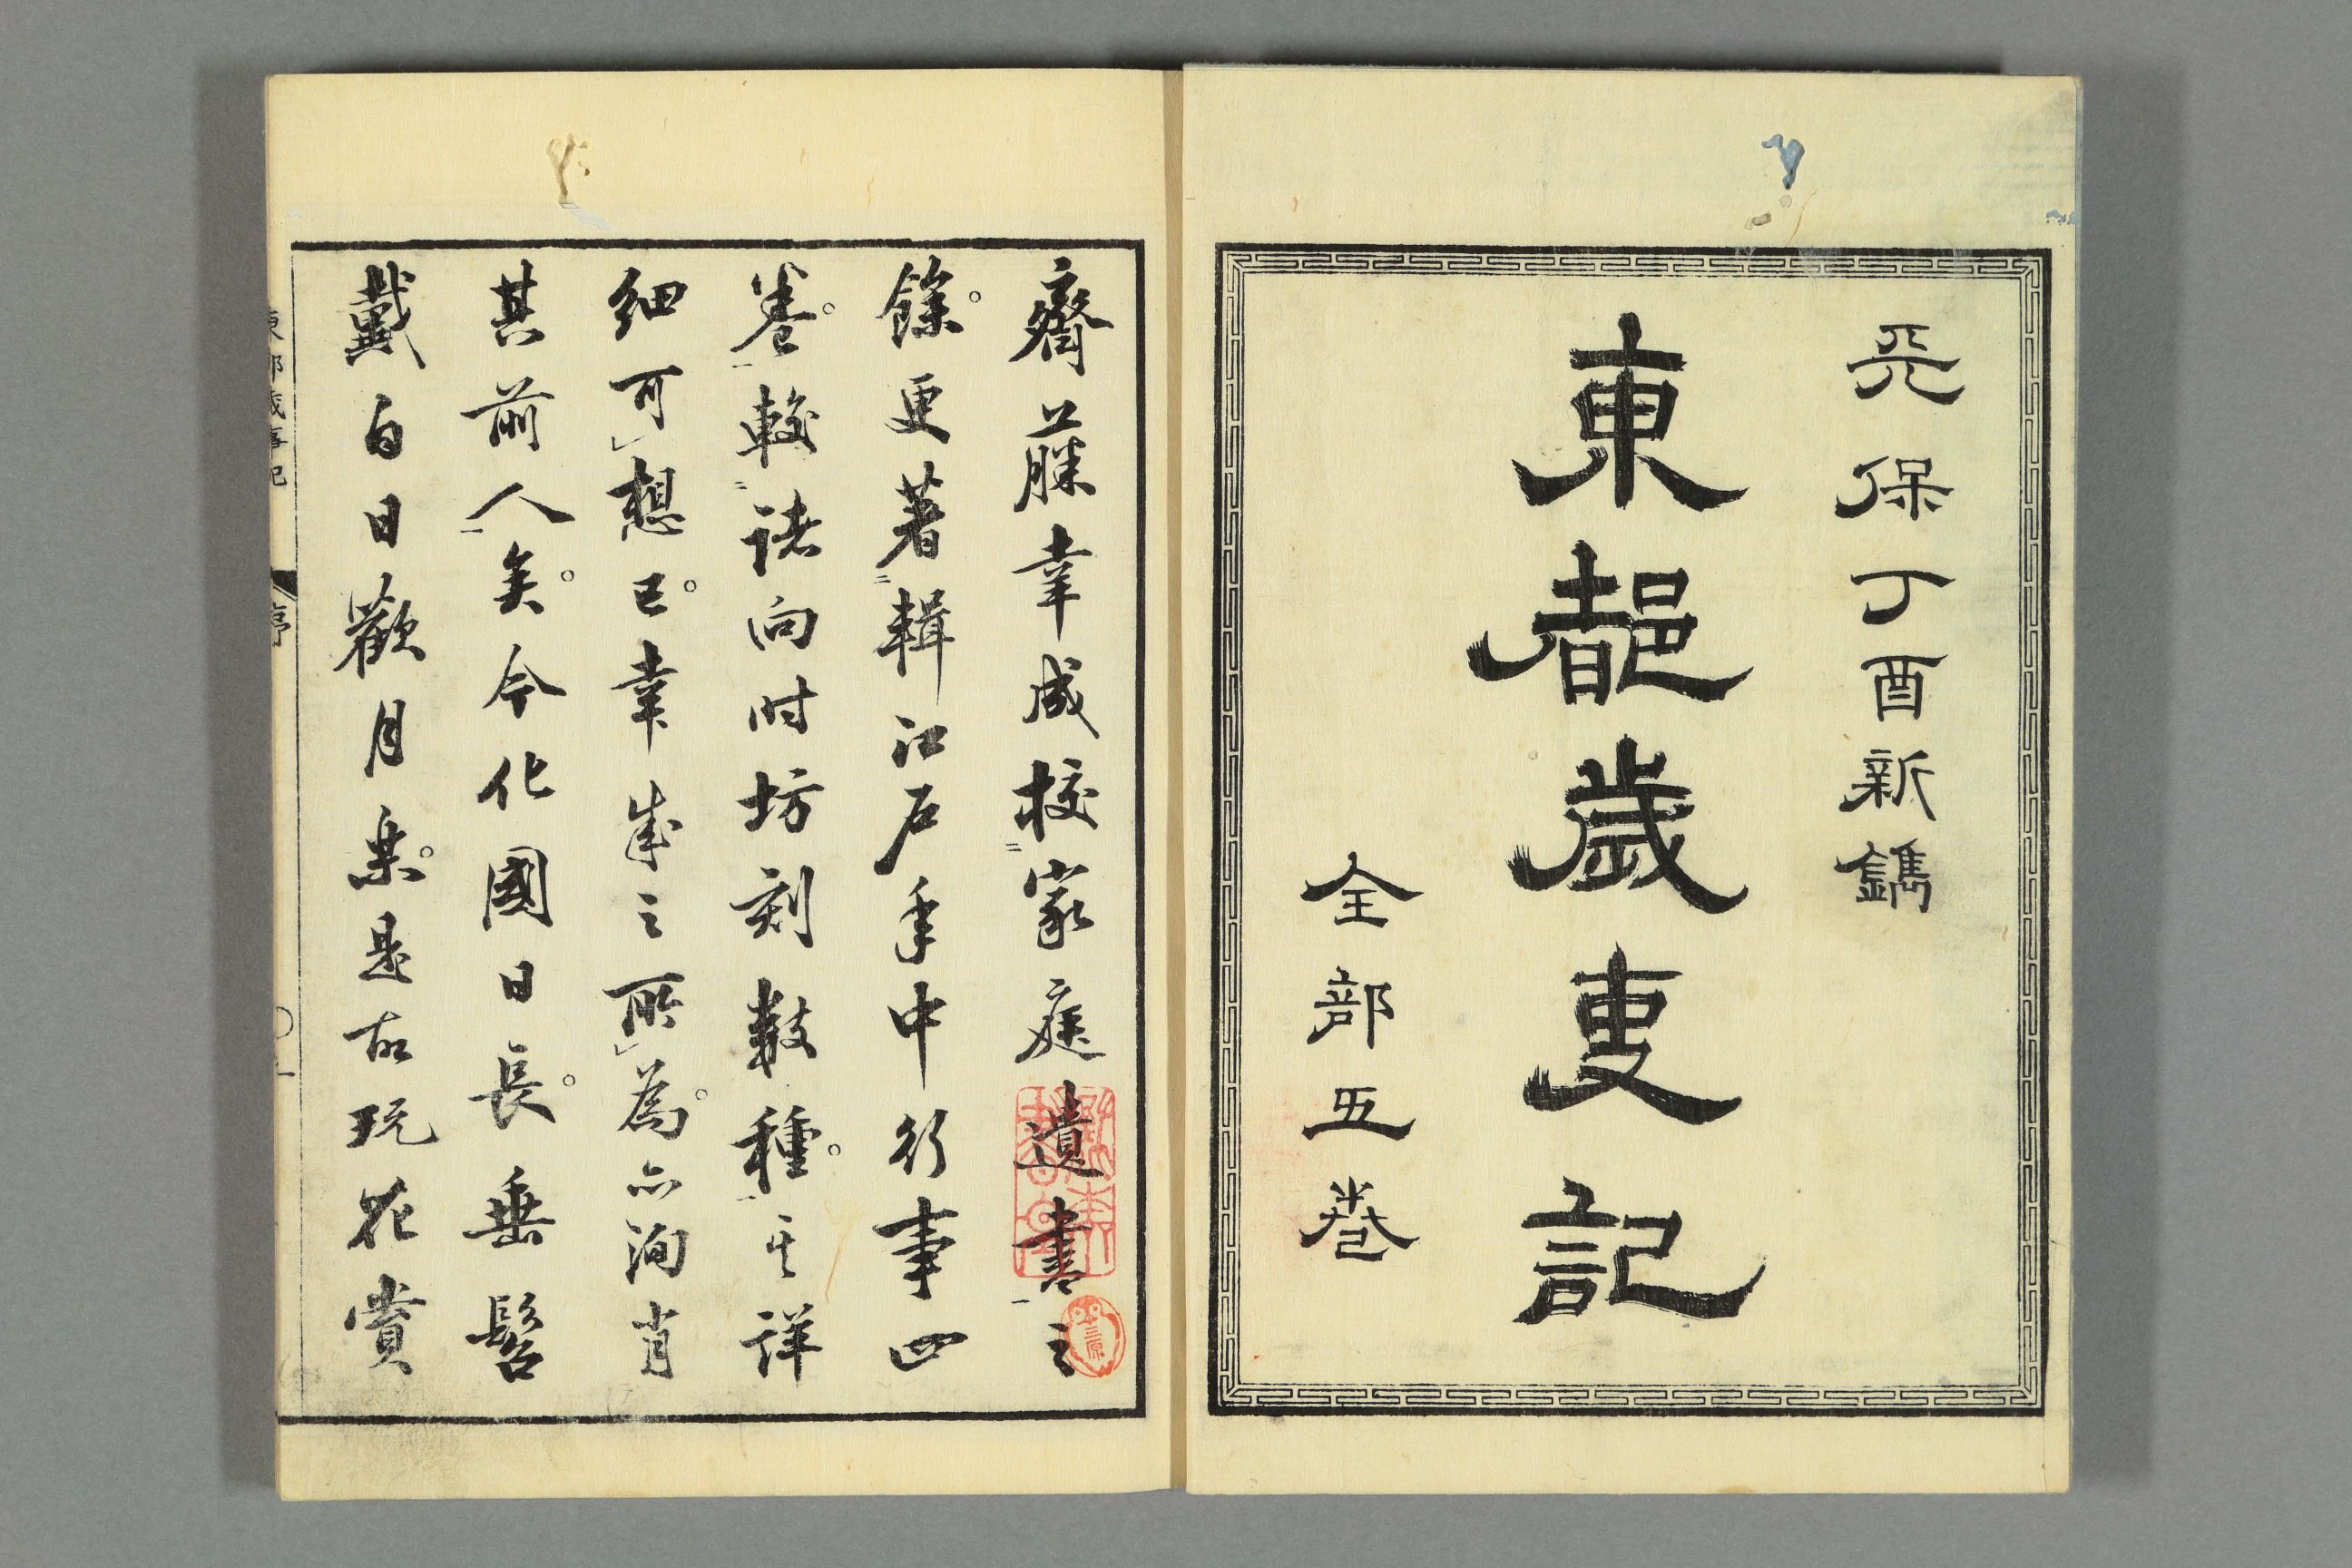 天保丁酉新鐫
東都歲事記
全部五卷
齋藤幸成校家庭遺書之
餘更著輯江戸年中行事四
卷較諸向时坊刻數種其詳
細可想已幸成之所為亦洵肖
其前人矣今化國日長垂髫
戴白日歡月樂是故玩花賞
東都歲事記
序